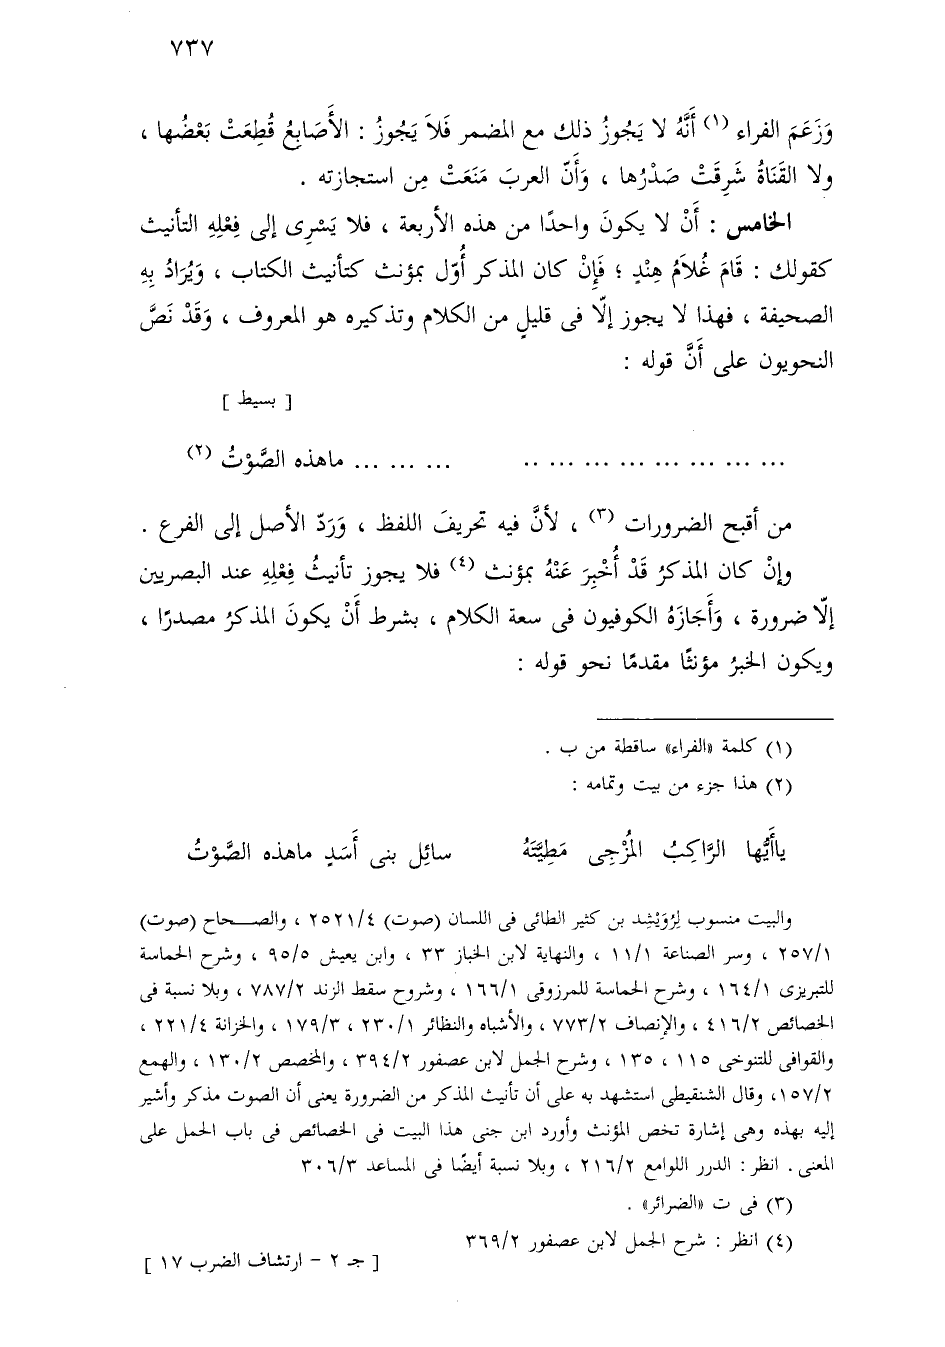 ٧٣٧
وَزَعَمَ الفراء (١) أَنَّهُ لا يَجُوزُ ذلك مع المضمر فَلاَ يَجُوزُ : الأَصَابِعُ قُطِعَتْ بَعْضُها ،
ولا القَنَاةُ شَرِقَتْ صَدْرُها ، وَأَنّ العربَ مَنَعَتْ مِن استجازته .
الخامس : أَنْ لا يكونَ واحدًا من هذه الأربعة ، فلا يَسْرِى إلى فِعْلِهِ التأنيث
كقولك : قَامَ غُلاَمُ هِنْدٍ ؛ فَإِنْ كان المذكر أُوّل بمؤنث كتأنيث الكتاب ، وَيُرَادُ بِهِ
الصحيفة ، فهذا لا يجوز إلّا فى قليلٍ من الكلام وتذكيره هو المعروف ، وَقَدْ نَصَّ
النحويون على أَنَّ قوله :
[ بسيط ]
... ... ... ... ... ... ... .. ... ... ... ماهذه الصَّوْتُ (٢)
من أقبح الضرورات (٣) ، لأنَّ فيه تحريفَ اللفظ ، وَرَدّ الأصل إلى الفرع .
وإنْ كان المذكرُ قَدْ أُخْبِرَ عَنْهُ بمؤنث (٤) فلا يجوز تأنيثُ فِعْلِهِ عند البصريين
إلّا ضرورة ، وَأَجَازَهُ الكوفيون فى سعة الكلام ، بشرط أَنْ يكونَ المذكرُ مصدرًا ،
ويكون الخبرُ مؤنثًا مقدمًا نحو قوله :
(١) كلمة «الفراء» ساقطة من ب .
(٢) هذا جزء من بيت وتمامه :
ياأَيُّها الرَّاكِبُ المُزْجِى مَطِيَّتَهُ سائِل بنى أَسَدٍ ماهذه الصَّوْتُ
والبيت منسوب لِرُوَيْشِد بن كثير الطائى فى اللسان (صوت) ٢٥٢١/٤ ، والصحاح (صوت)
٢٥٧/١ ، وسر الصناعة ١١/١ ، والنهاية لابن الخباز ٣٣ ، وابن يعيش ٩٥/٥ ، وشرح الحماسة
للتبريزى ١٦٤/١ ، وشرح الحماسة للمرزوقى ١٦٦/١ ، وشروح سقط الزند ٧٨٧/٢ ، وبلا نسبة فى
الخصائص ٤١٦/٢ ، والإنصاف ٧٧٣/٢ ، والأشباه والنظائر ٢٣٠/١ ، ١٧٩/٣ ، والخزانة ٢٢١/٤ ،
والقوافى للتنوخى ١١٥ ، ١٣٥ ، وشرح الجمل لابن عصفور ٣٩٤/٢ ، والمخصص ١٣٠/٢ ، والهمع
١٥٧/٢، وقال الشنقيطى استشهد به على أن تأنيث المذكر من الضرورة يعنى أن الصوت مذكر وأشير
إليه بهذه وهى إشارة تخص المؤنث وأورد ابن جنى هذا البيت فى الخصائص فى باب الحمل على
المعنى . انظر : الدرر اللوامع ٢١٦/٢ ، وبلا نسبة أيضًا فى المساعد ٣٠٦/٣
(٣) فى ت «الضرائر» .
(٤) انظر : شرح الجمل لابن عصفور ٣٦٩/٢
[ جـ ٢ - ارتشاف الضرب ١٧ ]